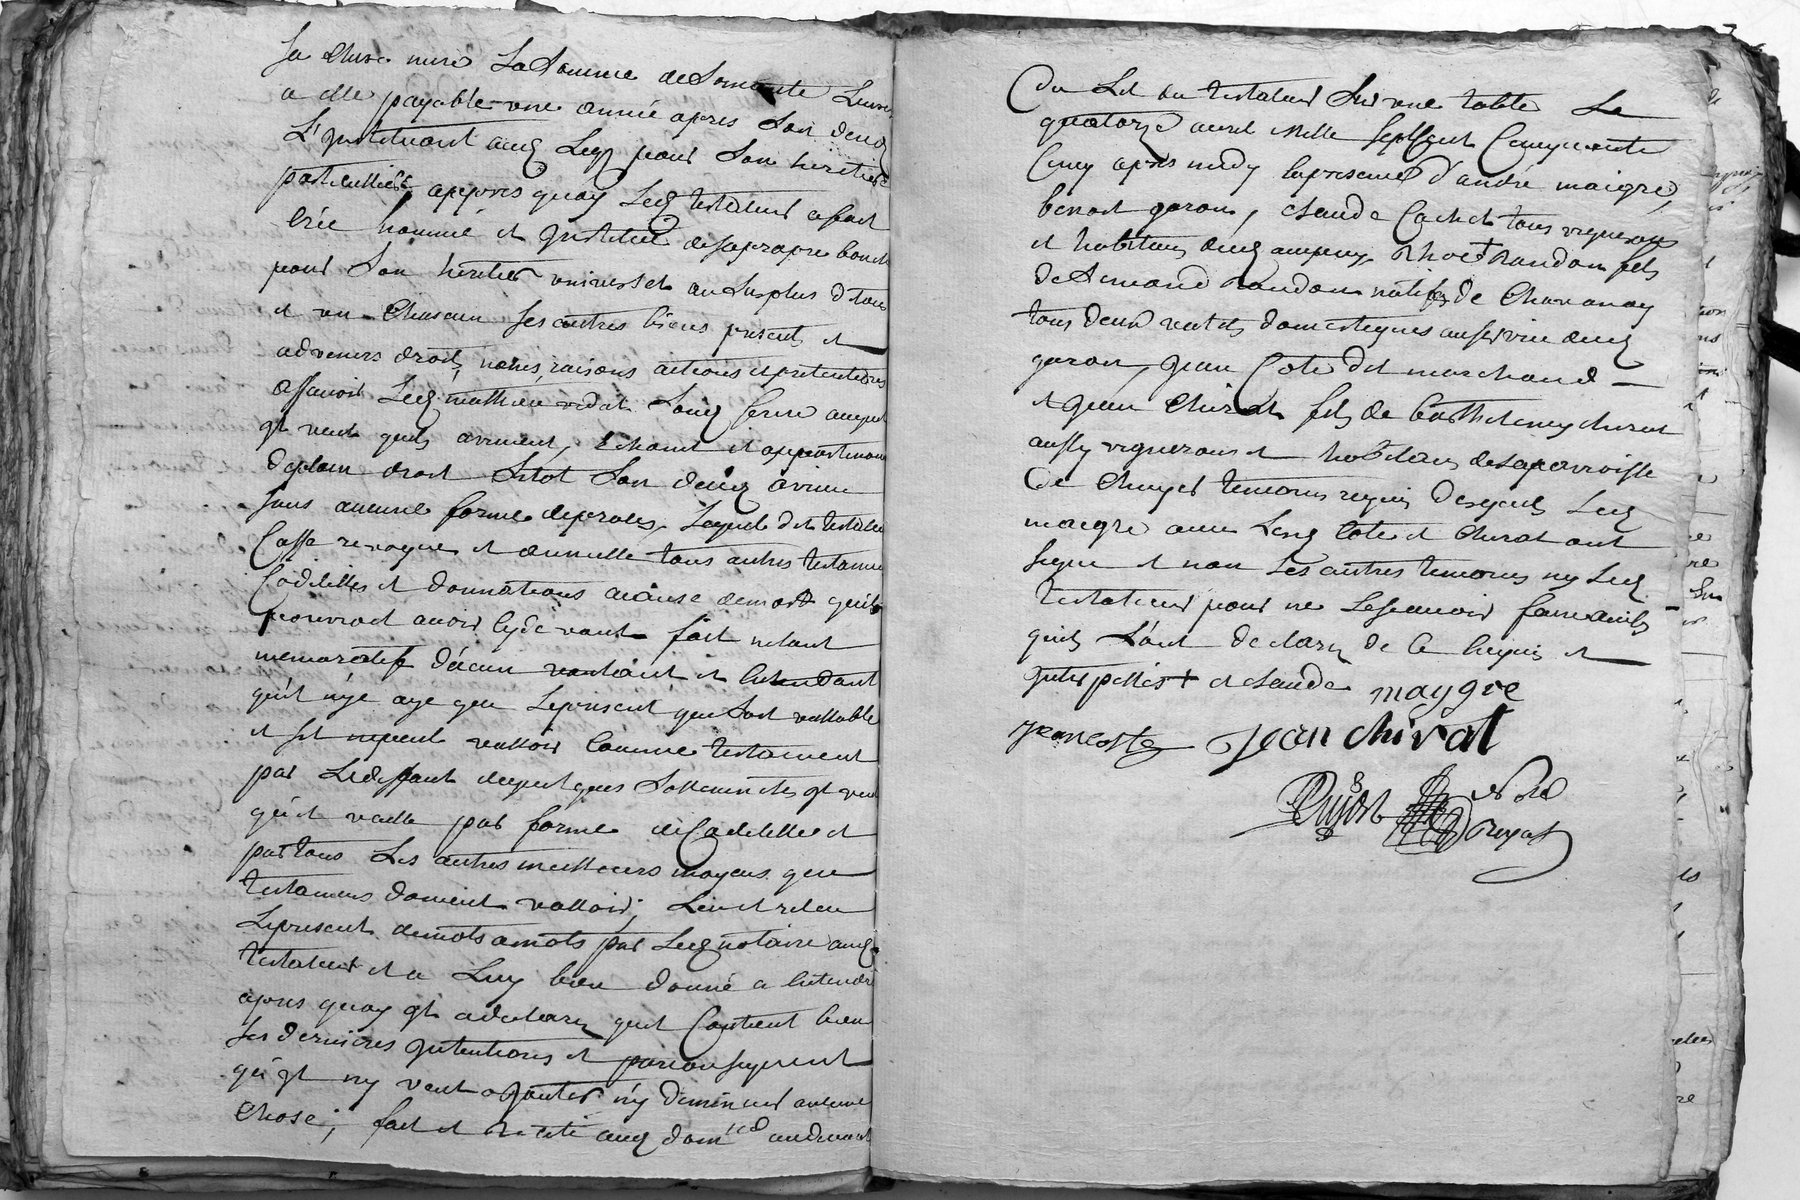 sa chere mere La Somme de Soixante Livres
a elle payable une année apres Son deces
L'Instituant audq Legs pour Son heritiere
particulliere, appres quoy Ledq testateur a fait
crée nommé et Institué de sa propre bouche
pour Son heritier universel au Surplus de tous
et un Chascun ses autres biens presents et
advenirs droits, noms, raisons actions et pretentions
assavoir Ledq mathieu vidal Sondq frere auquel
Il veut quils arrivent, Echoient et appartienent
de plain droit Sitot Son deces arrivé
sans aucune forme de proces, Lequel dit testateur
Casse revoque et annulle tous autres testamens
Codicilles et donnations a cause de mort quil
pourroit avoir cy devant fait netant
memoratif d'acun voulant et Entendant
qu'il n'y aye que Le present que Soit vallable
et sil ne peut valloir Comme testament
par Le deffaut de quelques Sollemnités Il veut
qu'il vaille par forme de Codicille et
par tous Les autres meilleurs moyens que
testamens doivent valloir; Leu et releu
Le present de mots a mots par Ledq notaire audq
testateur et a Luy bien donné a Entendre
apres quoy Il a declaré quil Contient bien
ses dernieres Intentions et par consequent
qu'Il ny veut ajouter n'y diminuer aucune
Chose; fait et recité audq dom.lle au devant
Du Lit du testateur Sur une table Le
quatorze avril Mille Sept Cent Cinquante
Cinq apres midy En presence d'andré maigre,
benoit garon, Claude Cachet tous vignerons
et habitans dudq ampuy, randon fils
de randon natif de Chavanay
tous deux valets domestiques au service dudq
garon, Jean Cote dit marchand
et Jean Chirat fils de barthelemy chirat
aussy vignerons et habitans de Sa parroisse
De temoins requis desquels Ledq
maigre avec Lesdq Cote et Chirat ont
signé et non Les autres temoins ny Ledq
testateur pour ne Le Scavoir faire ainsy
quils L'ont declaré de Ce Enquis et
Interpellés + et claude maygre
Jean coste Jean chirat